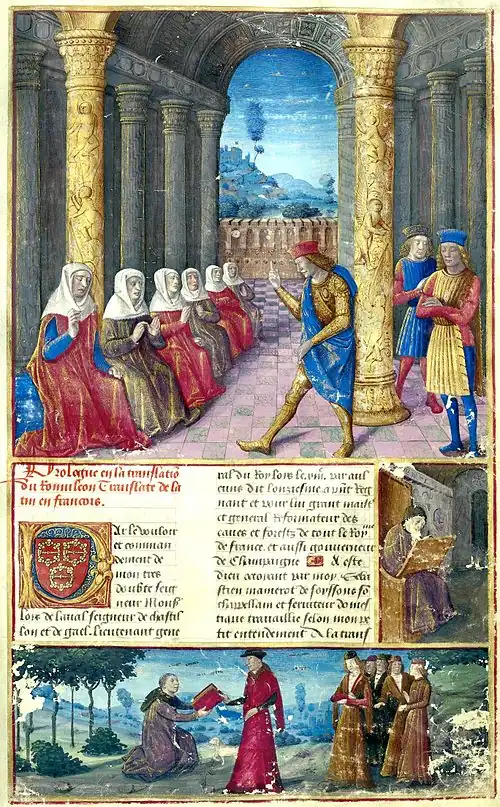 Prologue en la translatio
du Romuleon Translate de la
tin en francois.
Par le vouloir
et comman
dement de
mon tres
doubte seig
neur Mons
lois de laual seigneur de chastil
lon et de gael. lieutenant gene
ral du Roy lois le par auc
cuns dit lonziesme apnt Reg
nant et pour lui grant maist
et general Reformateur des
eaues et forestz de tout le Roy me
de france. et aussi gouuerneur
de Champaigne A este
dieu octroiant par moy. Seba
stien mamerot de soissons so
chappellain et seruiteur domes
tique trauaillie selon mon pe
tit entendement de la transl